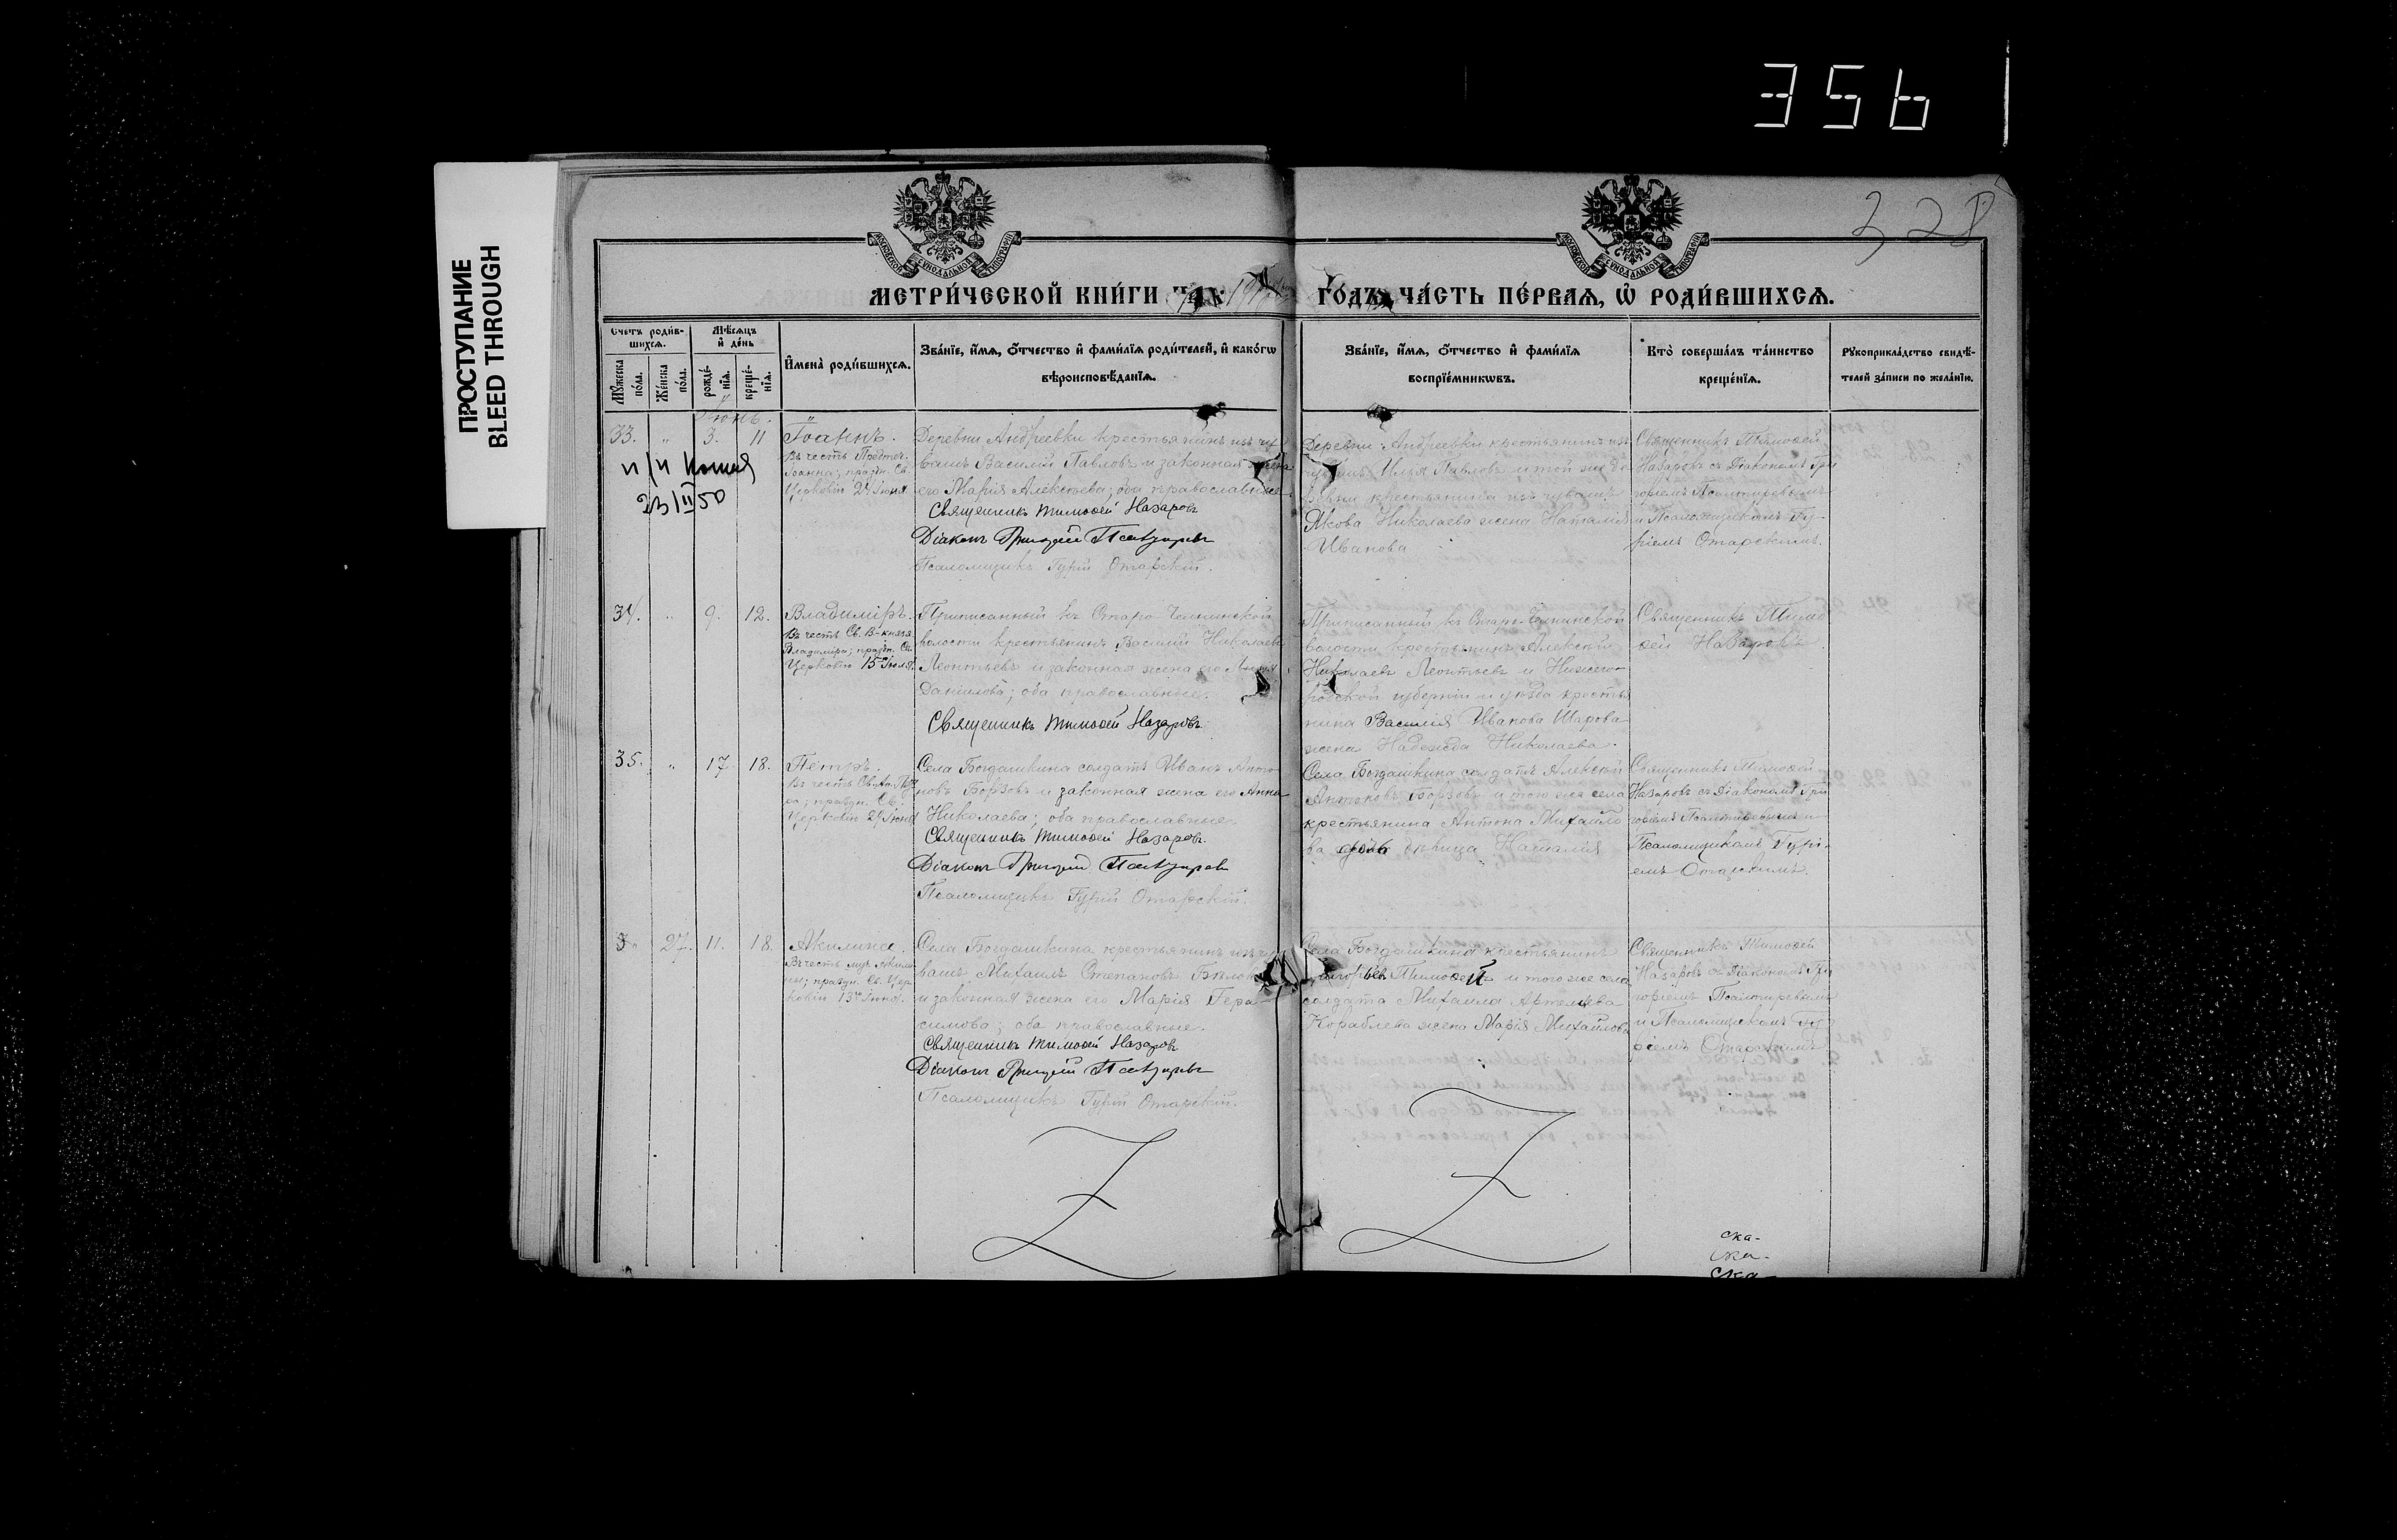 356
ПРОСТУПАНИЕ
BLEED THROUGH
328
МОСКОВСКОЙ СѴНОДАЛЬНОЙ ТИПОГРАФІИ
МОСКОВСКОЙ СѴНОДАЛЬНОЙ ТИПОГРАФІИ
МЕТРИ́ЧЕСКОЙ КНИ́ГИ НА
ГОДЪ, ЧА́СТЬ ПЕ́РВАЯ, Ѡ РОДИ́ВШИХСЯ.
Счетъ роди́в-
шихся.
Мѣсяцъ
и де́нь
Мꙋжеска по́ла.
Же́нска по́ла.
рожде́-
нїя.
креще́-
нїя.
Имена̀ роди́вшихся.
Зва́нїе, и́мя, о́тчество и фами́лїя роди́телей, и како́гѡ
вѣроисповѣ́данїя.
Зва́нїе, и́мя, о́тчество и фами́лїя
воспрїе́мникѡвъ.
Кто̀ соверша́лъ та́инство
креще́нїя.
Рꙋкоприкла́дство свидѣ́-
телей за́писи по жела́нїю.
Іюнь.
33. " 3. 11 Іоаннъ.
Въ честь Предтеч.
Іоанна; праздн. Св.
Церковію 24 Іюня
23/II 50
Деревни Андреевки крестьянинъ изъ чу
вашъ Василій Павловъ и законная жена
его Марія Алексѣева; оба православные
Священникъ Тимоѳей Назаровъ
Діаконъ Григорій Псалтыревъ
Псаломщикъ Гурій Отарскій.
Деревни Андреевки крестьянинъ изъ
чувашъ Илья Павловъ и той же де
ревни крестьянина изъ чувашъ
Якова Николаева жена Наталія
Иванова
Священникъ Тимоѳей
Назаровъ съ Діакономъ Гри
горіемъ Псалтыревымъ
и Псаломщикомъ Гу-
ріемъ Отарскимъ.
34. " 9. 12. Владиміръ.
Въ честь Св. В-князя
Владиміра; праздн. Св.
Церковію 15 Іюля.
Приписанный къ Старо-Челнинской
волости крестьянинъ Василій Николаевъ
Леонтьевъ и законная жена его
Данилова; оба православные.
Священникъ Тимоѳей Назаровъ.
Приписанный къ Старо-Челнинской
волости крестьянинъ Алексѣй
Николаевъ Леонтьевъ и Нижего-
родской губерніи и уѣзда крестья
нина Василія Иванова Шарова
жена Надежда Николаева.
Священникъ Тимо
ѳей Назаровъ.
35. " 17 18. Петръ.
Въ честь Св. Ап. Пет
ра; праздн. Св.
Церковію 29 Іюня
Села Богдашкина солдатъ Иванъ Анто-
новъ Борзовъ и законная жена его Анна
Николаева; оба православные.
Священникъ Тимоѳей Назаровъ.
Діаконъ Григорій Псалтыревъ
Псаломщикъ Гурій Отарскій.
Села Богдашкина солдатъ Алексѣй
Антоновъ Борзовъ и того же села
крестьянина Антона Михайло
ва дочь дѣвица Наталія
Священникъ Тимоѳей
Назаровъ съ Діакономъ Гри
горіемъ Псалтыревымъ и
Псаломщикомъ Гурі-
емъ Отарскимъ.
27. 11. 18. Акилина.
Въ честь муч. Акили
ны; праздн. Св. Цер
ковію 13го Іюня.
Села Богдашкина крестьянинъ изъ чу
вашъ Михаилъ Степановъ
и законная жена его Марія Гера-
симова; оба православные.
Священникъ Тимоѳей Назаровъ
Діаконъ Григорій Псалтыревъ
Псаломщикъ Гурій Отарскій.
Села Богдашкина крестьянинъ
и того же села
солдата Михаила Артемьева
Кораблева жена Марія Михайлова
Священникъ Тимоѳей
Назаровъ съ Діакономъ Гри
горіемъ Псалтыревымъ
и Псаломщикомъ Гу
ріемъ Отарскимъ
ска-
ска-
ска-